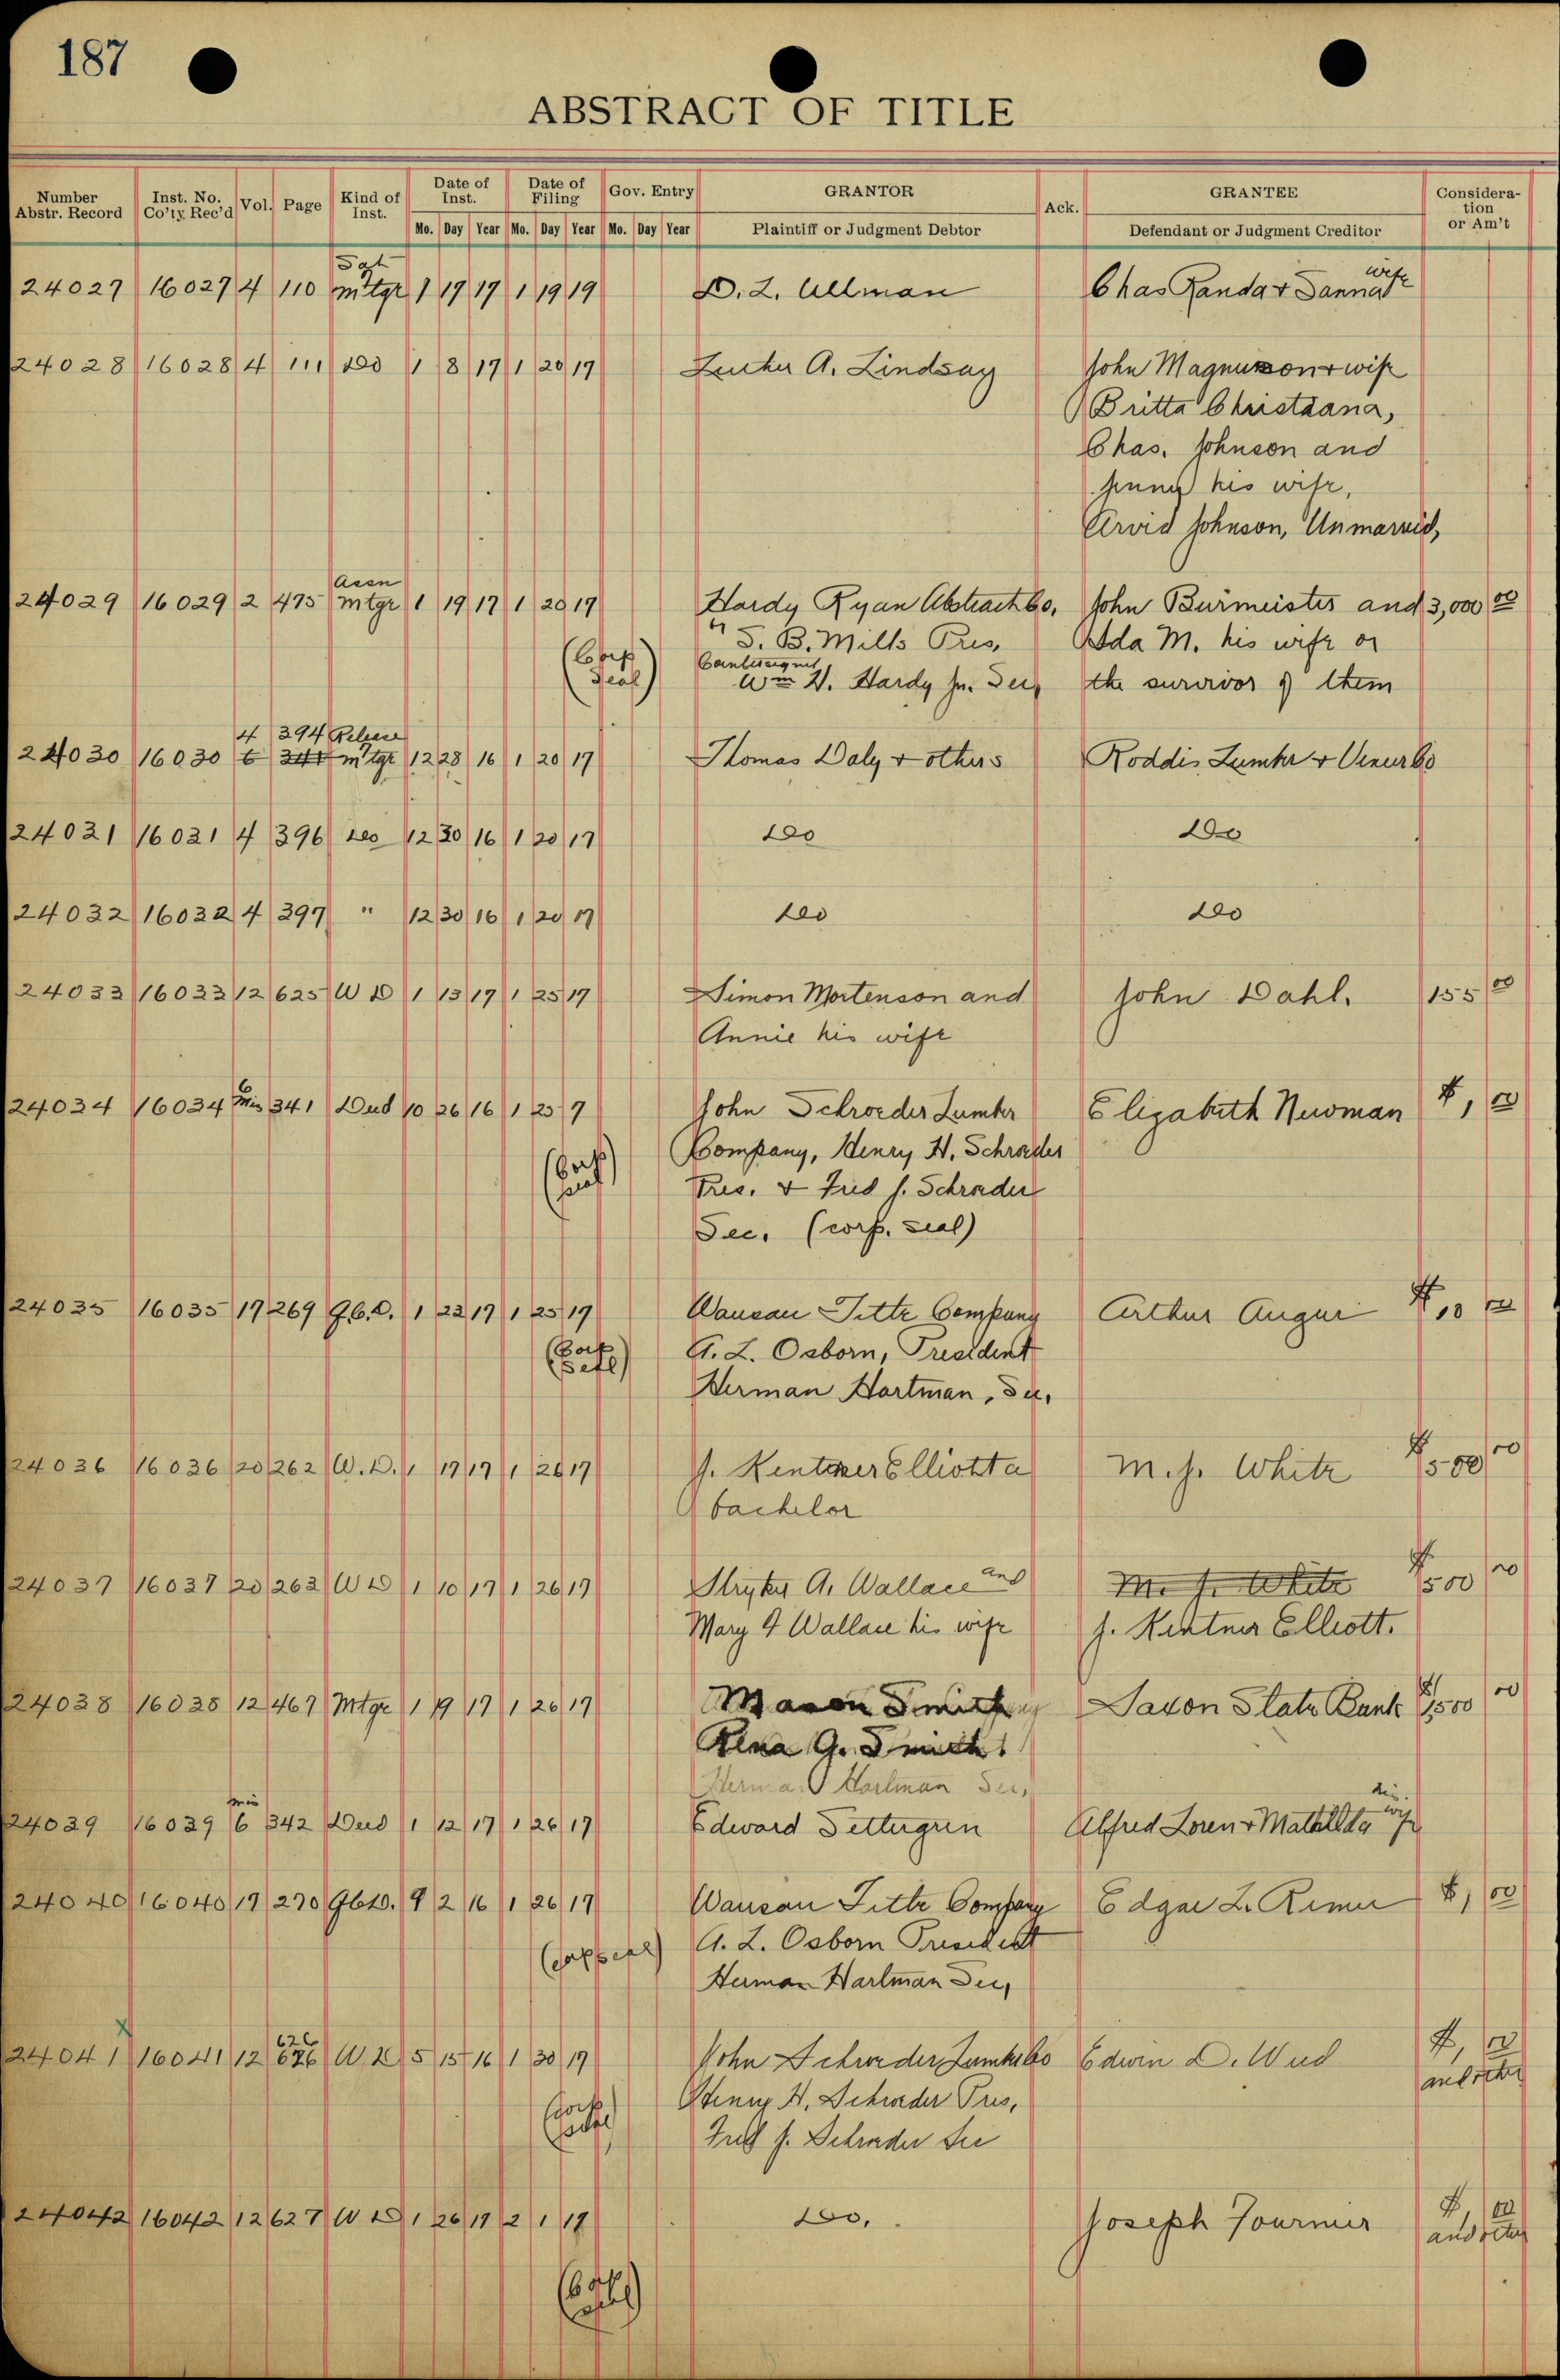 187
ABSTRACT OF TITLE
Number Abstr. Record Inst. No. Co'ty Rec'd Vol. Page Kind of Inst. Date of Inst. Date of Filing Gov. Entry GRANTOR Ack. GRANTEE Consideration or Am't
Mo. Day Year Mo. Day Year Mo. Day Year Plaintiff or Judgment Debtor Defendant or Judgment Creditor
Sat wife
24027 16027 4 110 mtge 1 17 17 1 19 19 D. L. Ullman Chas Randa &
24028 16028 4 111 do 1 8 17 1 20 17 A. Lindsay John Magnuson & wife
Britta Christiana,
Chas. Johnson and
Jenny his wife,
Arvid Johnson, Unmarried,
Assn
24029 16029 2 475 mtge 1 19 17 1 20 17 Hardy Ryan Abstract Co. John Burmeister and 3,000 00
" S. B. Mills Pres, Ada M. his wife or
(Corp Seal) Wm H. Hardy Jr. Sec, the survivor of them
4 394 Release
24030 16030 6 mtge 12 28 16 1 20 17 Thomas Daly & others Roddis Lumber & Veneer Co
24031 16031 4 396 do 12 30 16 1 20 17 do do
24032 16032 4 397 " 12 30 16 1 20 17 do do
24033 16033 12 625 W D 1 13 17 1 25 17 Simon Mortenson and John Dahl. 155 00
Annie his wife
24034 16034 6 Mis 341 Deed 10 26 16 1 25 7 John Schroeder Lumber Elizabeth Newman $1, 00
Company, Henry H. Schroeder
(Corp seal) Pres. & Fred J. Schroeder
Sec. (corp. seal)
24035 16035 17 269 Q.C.D. 1 22 17 1 25 17 Wausau Title Company Arthur Auger $10 00
(Corp Seal) A. L. Osborn, President
Herman Hartman, Sec,
24036 16036 20 262 W.D. 1 17 17 1 26 17 J. Kentner Elliott a M. J. White $500 00
bachelor
24037 16037 20 263 W D 1 10 17 1 26 17 Stryker A. Wallace and M. J. White $500 00
Mary J Wallace his wife J. Kentner Elliott.
24038 16038 12 467 Mtge 1 19 17 1 26 17 Mason Smith Saxon State Bank $1500 00
Rena G. Smith
Herman Hartman Sec,
Mis his
24039 16039 6 342 Deed 1 12 17 1 26 17 Edward Settergren Alfred Loren & Mathilda wife
24040 16040 17 270 QCD. 9 2 16 1 26 17 Wausau Title Company Edgar L. $1, 00
(corp seal) A. L. Osborn President
Herman Hartman Sec,
x
626
24041 16041 12 626 W D 5 15 16 1 30 17 John Schroeder Lumber Co Edwin D. $1, 00
(corp seal) Henry H. Schroeder Pres, and other
Fred J. Schroeder Sec
24042 16042 12 627 W D 1 26 17 2 1 17 do. Joseph Fournier $1, 00
(Corp seal) and other